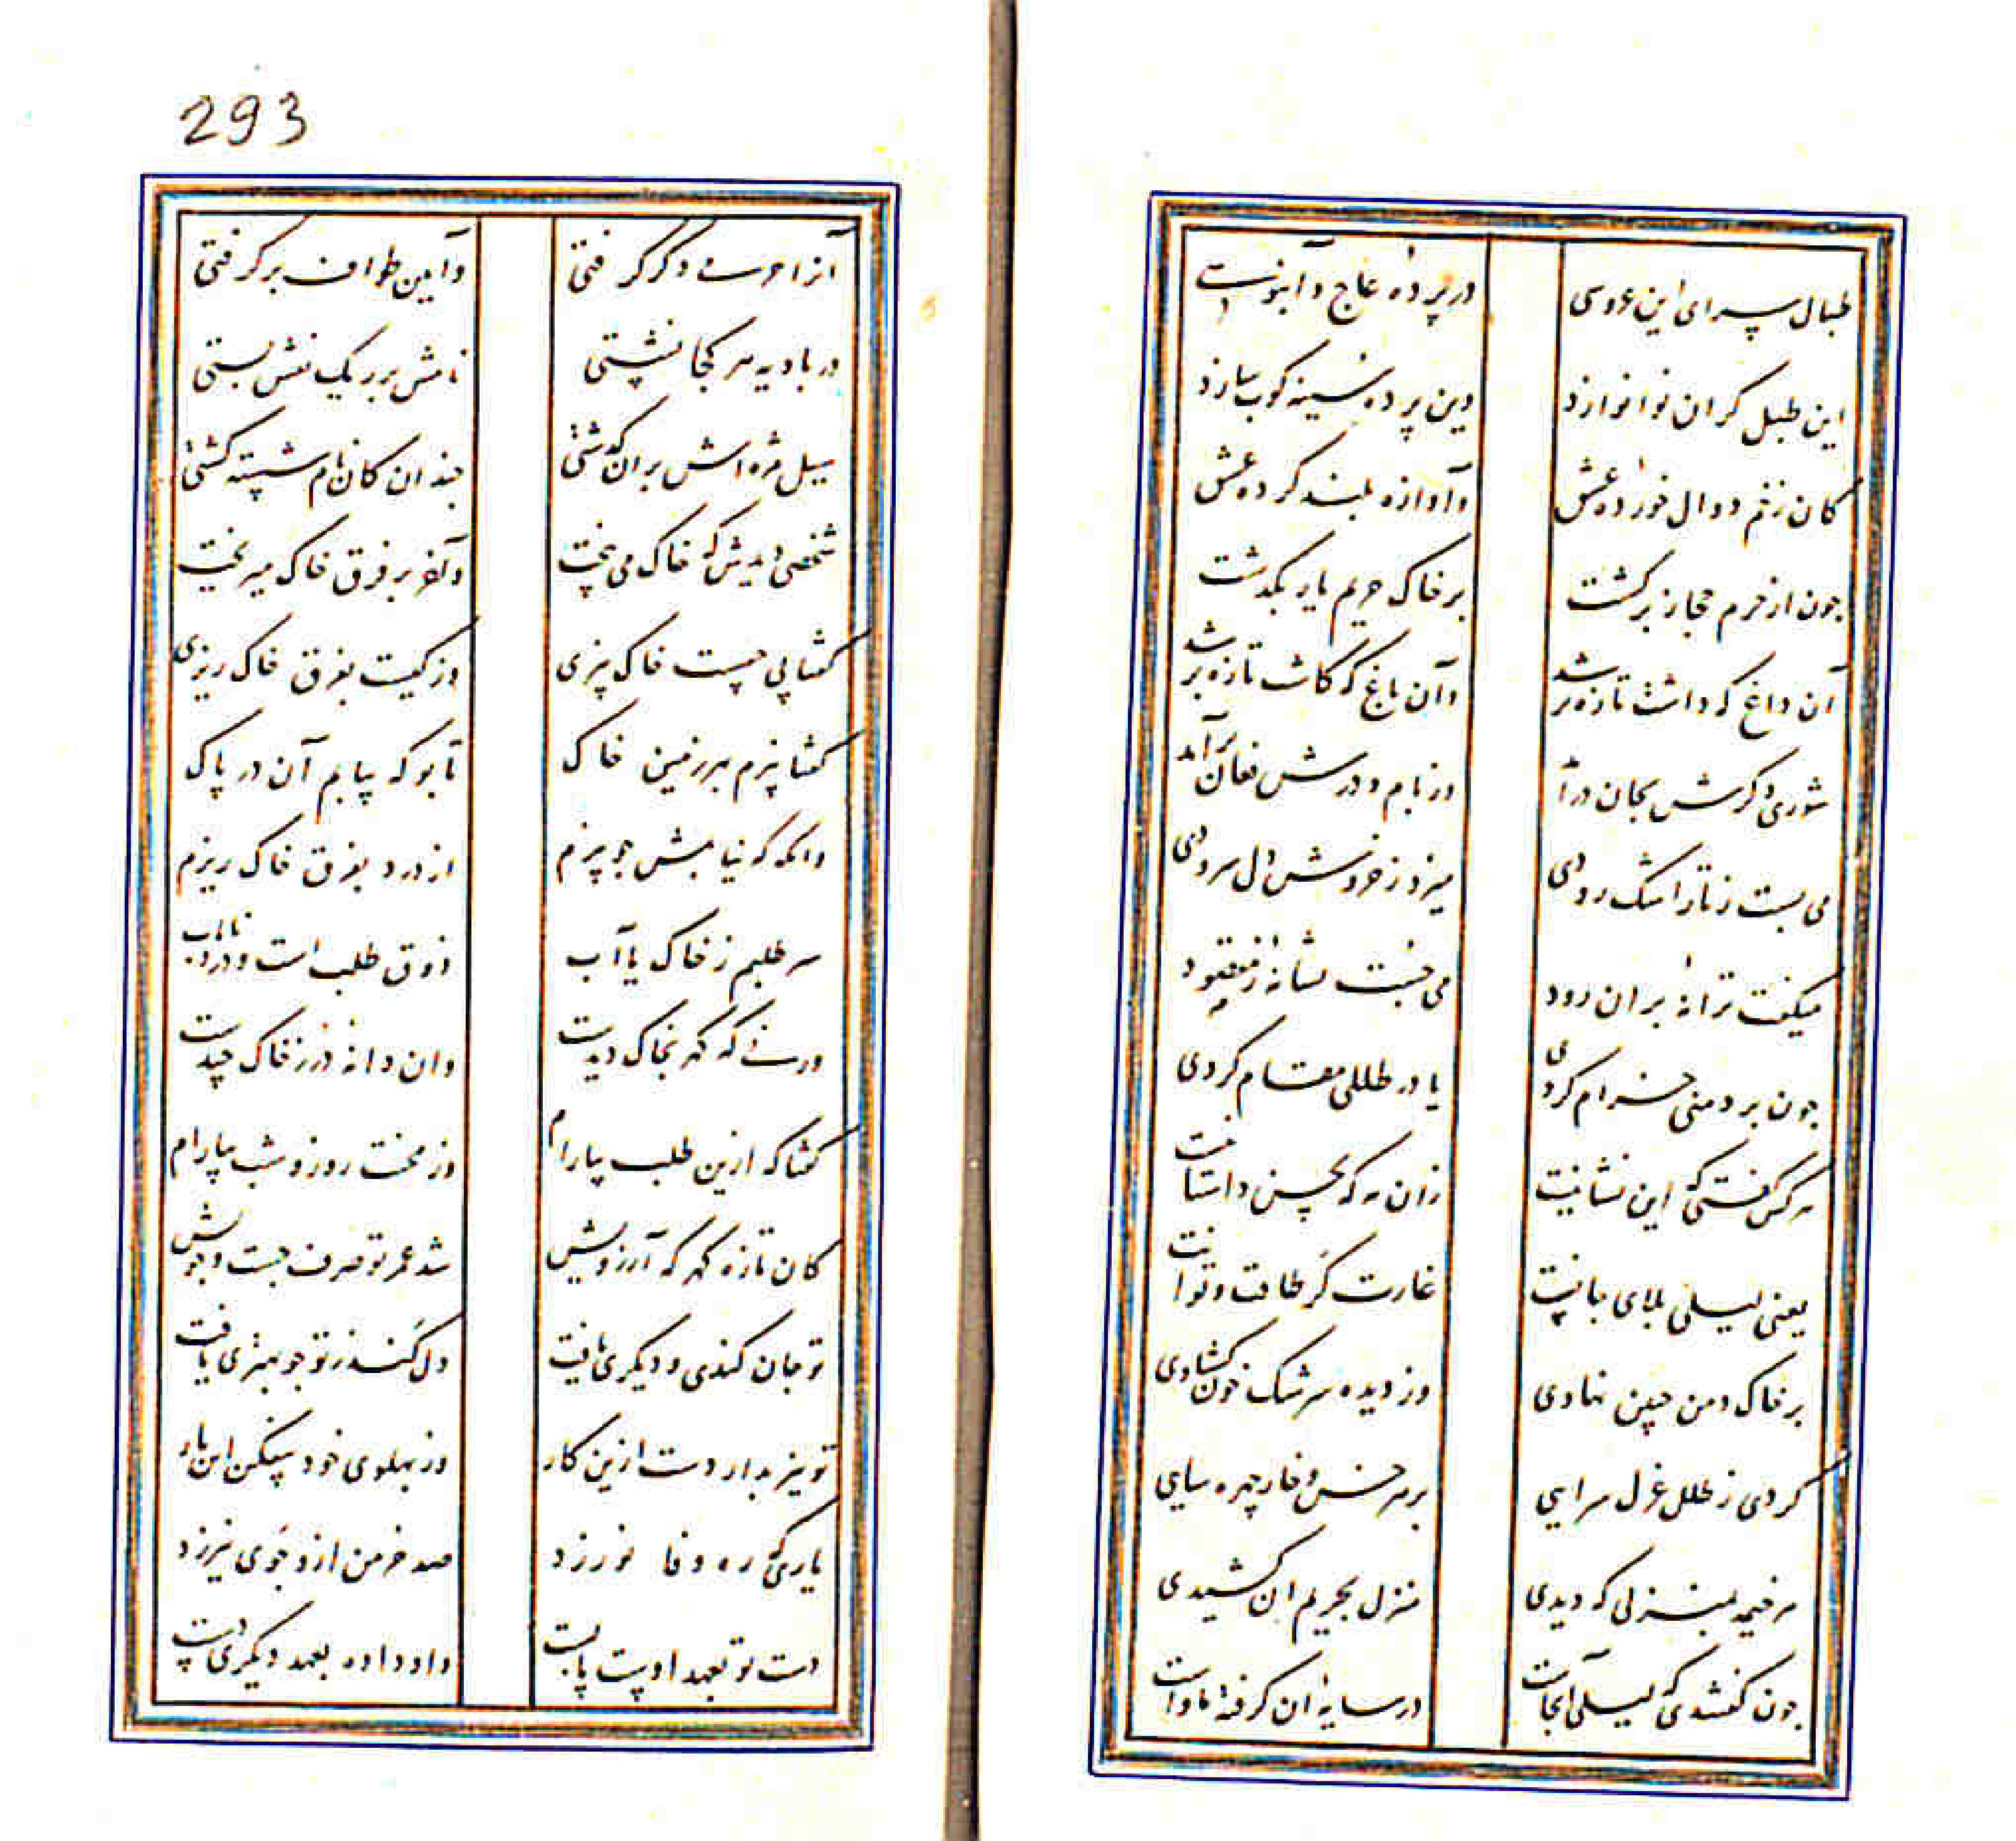 طبال سرای این عروسی
در پرده عاج و آبنوسی
این طبل گران نوا نوازد
وین پرده سینه کوب سازد
کان زخم دوال خورده عشق
وآوازه بلند کرده عشق
چون از حرم حجاز برگشت
بر خاک حریم یار بگذشت
آن داغ که داشت تازه تر شد
وآن باغ که کاشت تازه بر شد
شوری دگرش بجان درآمد
وز بام و درش فغان برآمد
می بست ز تار اشک رودی
میزد ز خروش دل سرودی
میگفت ترانه بران رود
می جست نشانه ز مقصود
چون بر دمنی خرام کردی
یا در طللی مقام کردی
هر کس گفتی که این نشانیست
زان مه که بحسن داستانیست
یعنی لیلی بلای جانیست
غارت گر طاقت و توانیست
بر خاک دمن جبین نهادی
وز دیده سرشک خون گشادی
کردی ز طلل غزل سرایی
بر هر خس و خار چهره سایی
هر خیمه بمنزلی که دیدی
منزل بحریم ان کشیدی
چون گفتندی که لیلی آنجاست
در سایه ان گرفته ماواست
293
آنرا حرمی دگر گرفتی
وآیین طواف برگرفتی
در بادیه هر کجا نشستی
نامش بر ریگ نقش بستی
سیل مژه اش بران گذشتی
چندان کان نام شسته گشتی
شخصی دیدش که خاک می بیخت
وآخر بر فرق خاک میریخت
گفتا پی چیست خاک بیزی
وز کیست بفرق خاک ریزی
گفتا بیزم بهر زمین خاک
تا بو که بیابم آن در پاک
وانگه که نیابمش چو بیزم
از درد بفرق خاک ریزم
سر طلبم ز خاک یا آب
ذوق طلب است و درد نایاب
ورنی که گهر بخاک دیدست
وان دانه در ز خاک چیدست
گفتا که ازین طلب بیارام
وز محنت روز و شب بیارام
کان تازه گهر که آرزویش
شد عمر تو صرف جست و جویش
تو جان کندی و دیگری یافت
دل کند ز تو چو بهتری یافت
تو نیز بدار دست ازین کار
وز پهلوی خود بیفکن این بار
یاری که ره وفا نورزد
صد خرمن ازو جوی نیرزد
دست تو بعهد اوست پابست
او داده بعهد دیگری دست